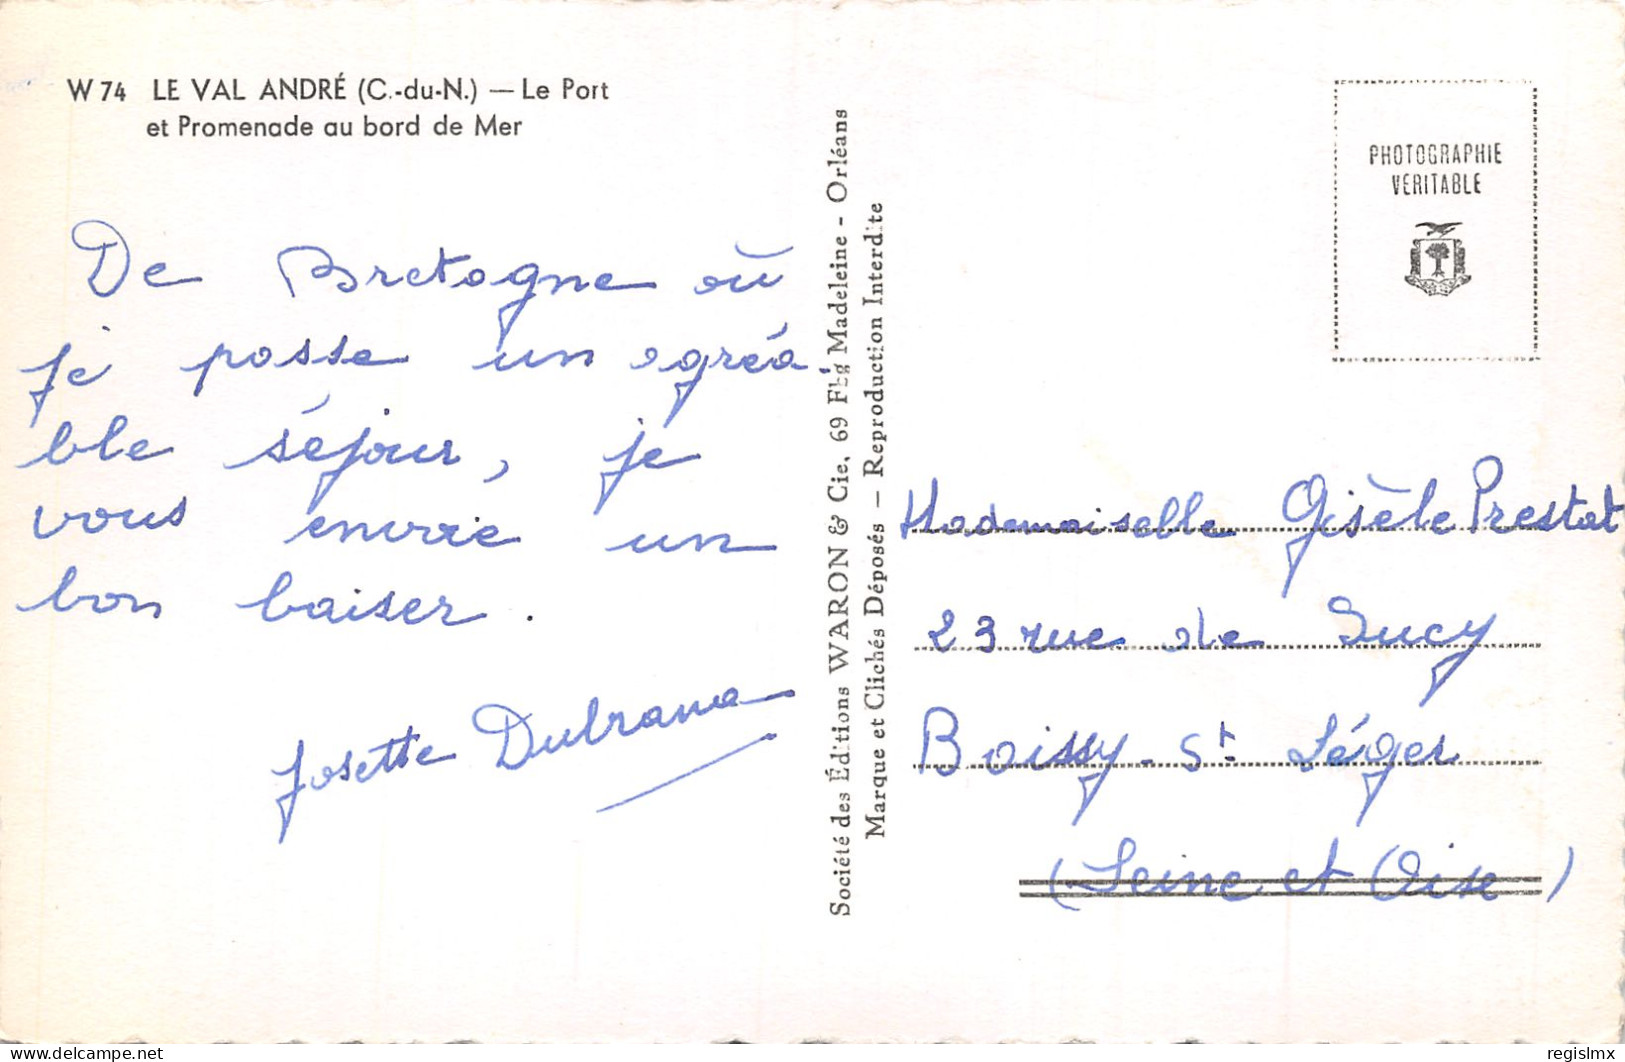 W 74 LE VAL ANDRÉ (C.-du-N.) — Le Port
et Promenade au bord de Mer
De Bretagne où
je passe un agréa-
ble séjour, je
vous envoie un
bon baiser.
Josette Dubrana
Société des Éditions WARON & Cie, 69 Fbg Madeleine - Orléans
Marque et Clichés Déposés — Reproduction Interdite
PHOTOGRAPHIE
VERITABLE
Mademoiselle Gisèle Prestat
23 rue de Sucy
Boissy-St Léger
(Seine et Oise)
www.delcampe.net
regislmx